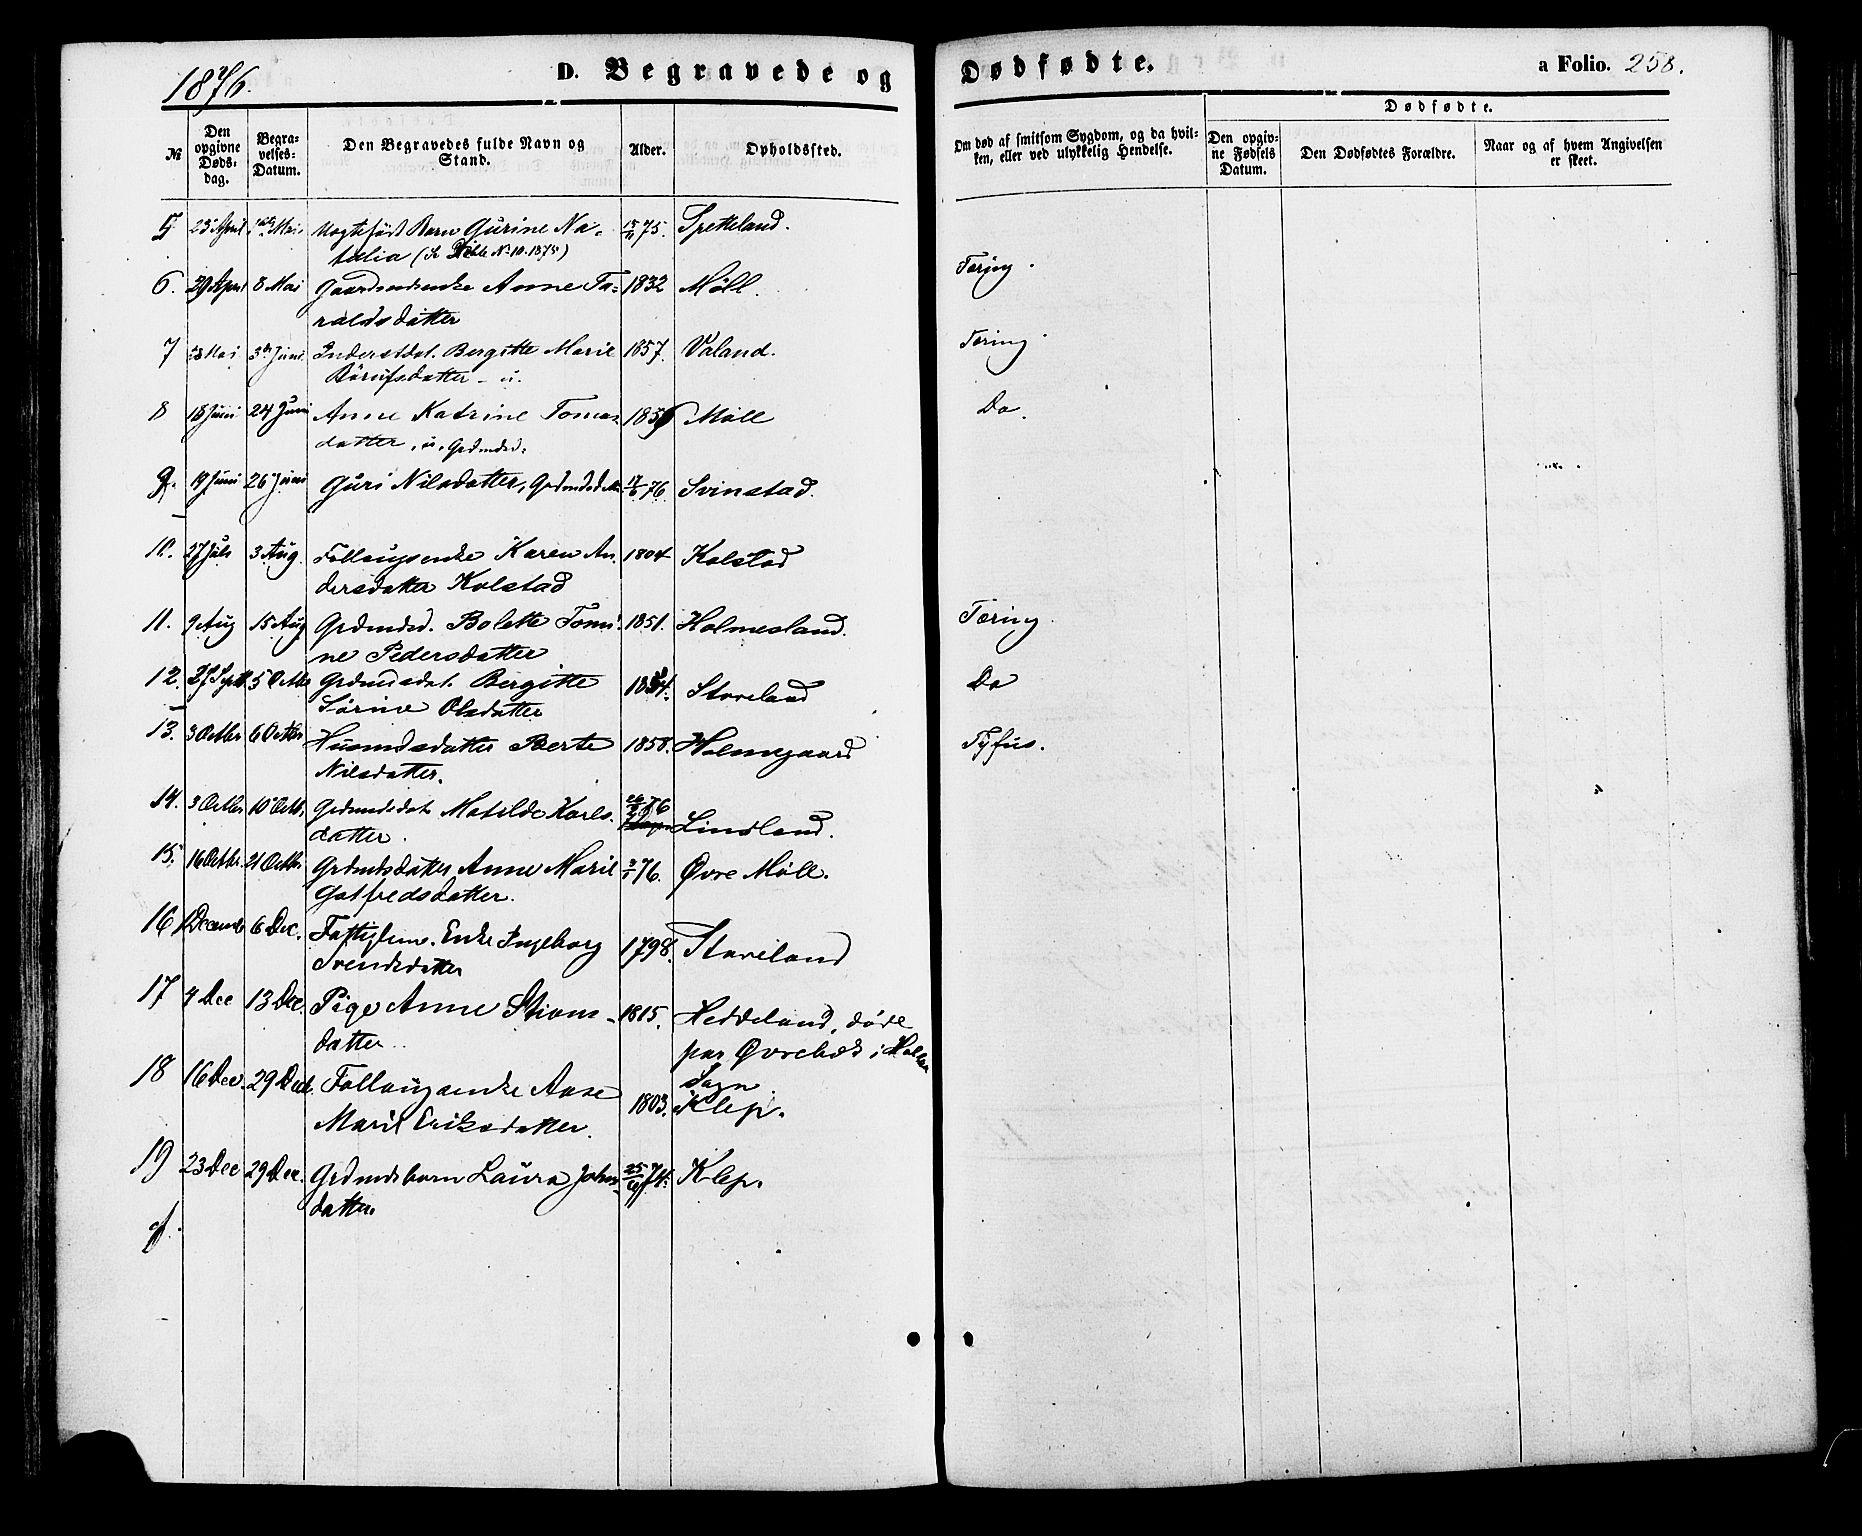 1876.
D. Begravede og
Dødfødte.
a Folio. 258.
№
Den opgivne Døds-dag.
Begra-velses-Datum.
Den Begravedes fulde Navn og Stand.
Alder.
Opholdssted.
Om død af smitsom Sygdom, og da hvil-ken, eller ved ulykkelig Hendelse.
Dødfødte.
Den opgiv-ne Fødsels Datum.
Den Dødfødtes Forældre.
Naar og af hvem Angivelsen er skeet.
5 23 April Mai Uægtefødt Barn Gurine Na-
talia (Se No 10. 1875) 75. Spetteland.
6. 29 April 8 Mai Gaardmdenke Anne Ta-
raldsdatter 1832 Møll. Tæring.
7 Mai 3 Juni Inderstdat. Bergitte Marie
datter - u. 1857. Valand. Tæring.
8 18 Juni 24 Juni Anne Katrine Tomas-
datter, u. Grdmdsd. 1856 Møll Do.
9. 19 Juni 26 Juni Guri Nilsdatter, Grdmdsd 76. Svinstad.
10. 27 Juli 3 Aug. Follaugsenke Karen An-
dersdatter Kolstad 1804 Kolstad
11. 9 Aug 15 Aug Grdmdsd. Bolette Tomi-
ne Pedersdatter 1851. Holmesland. Tæring.
12. 27 Septb 5 Octbr Grdmdsdat. Bergitte
Sørine Olsdatter Storeland Do
13. 3 Octbr 6 Octbr Husmdsdatter Berte
Nilsdatter. 1858. Holmegaard Tyfus.
14. 3 Octbr 10 Octb. Grdmdsdat. Matilde Karls-
datter. 76 Lindland.
15. 16 Octbr. 21 Octbr. Grdmdsdatter Anne Marie
Gotfredsdatter. 76. Øvre Møll.
16 1 Decemb 6 Dec. Fattiglem. Enke Ingeborg
Svendsdatter 1798. Storeland
17 4 Dec 13 Dec. Pige Anne Stians-
datter. 1815. Heddeland, døde
paa Øvrebø i
Sogn
18 16 Dec. 29 Dec. Follaugsenke Aase
Marie Eriksdatter. 1803. Klep.
19 23 Dec 29 Dec. Grdmdsbarn Laura Johns-
datter. 25/6 74. Klep.